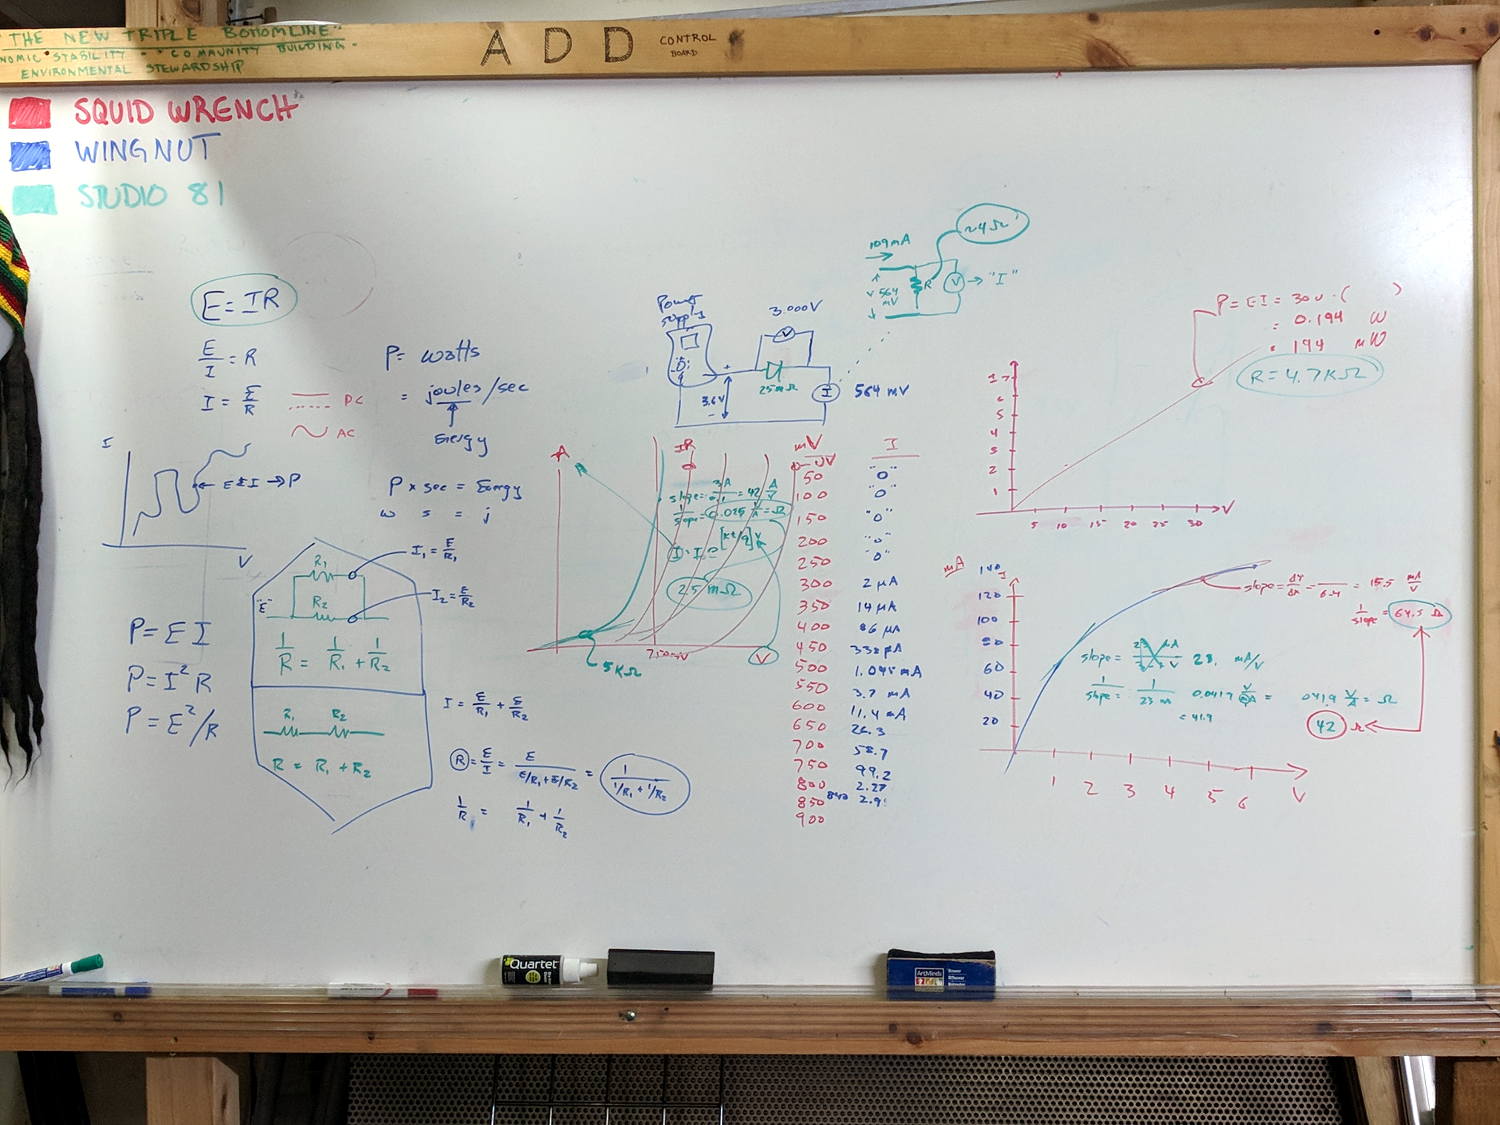 "THE NEW TRIPLE BOTTOMLINE"
NOMIC STABILITY - COMMUNITY BUILDING -
ENVIRONMENTAL STEWARDSHIP
ADD
CONTROL
BOARD
SQUID WRENCH
WINGNUT
STUDIO 81
E = IR
E/I = R
I = E/R
DC
AC
P = watts
= joules/sec
Energy
P x sec = Energy
W S = j
I
E & I → P
V
P = EI
P = I² R
P = E²/R
R₁
"E"
R₂
I₁ = E/R₁
I₂ = E/R₂
1/R = 1/R₁ + 1/R₂
R₂
R = R₁ + R₂
I = E/R₁ + E/R₂
R = E/I = E / (E/R₁ + E/R₂) = 1 / (1/R₁ + 1/R₂)
1/R = 1/R₁ + 1/R₂
Power
3.000V
V
25mΩ
3.6V
+
-
I
564 mV
109mA
R
V → "I"
564
mV
A
IR
= 42 A/V
1/slope = 0.025 V/A = Ω
25 mΩ
5KΩ
750mV
V
mV I
50 "0"
100 "0"
150 "0"
200 "0"
250 "0"
300 2 μA
350 14 μA
400 86 μA
450 332 μA
500 1.095 mA
550 3.7 mA
600 11.4 mA
650 26.3
700 58.7
750 99.2
800 2.27
850 840 2.9
900
P = EI = 30V · ( )
= 0.194 W
= 194 mW
R = 4.7KΩ
6
5
4
3
2
1
5 10 15 20 25 30 V
mA 140
120
100
80
60
40
20
1 2 3 4 5 6 V
slope = ΔY/ΔX = = 15.5 mA/V
1/slope = 64.5 Ω
slope = 23. mA/V
1/slope = 1/23 0.0417 V/mA = 041.9 V/A = Ω
= 41.9
42 Ω
Quartet
ArtMinds